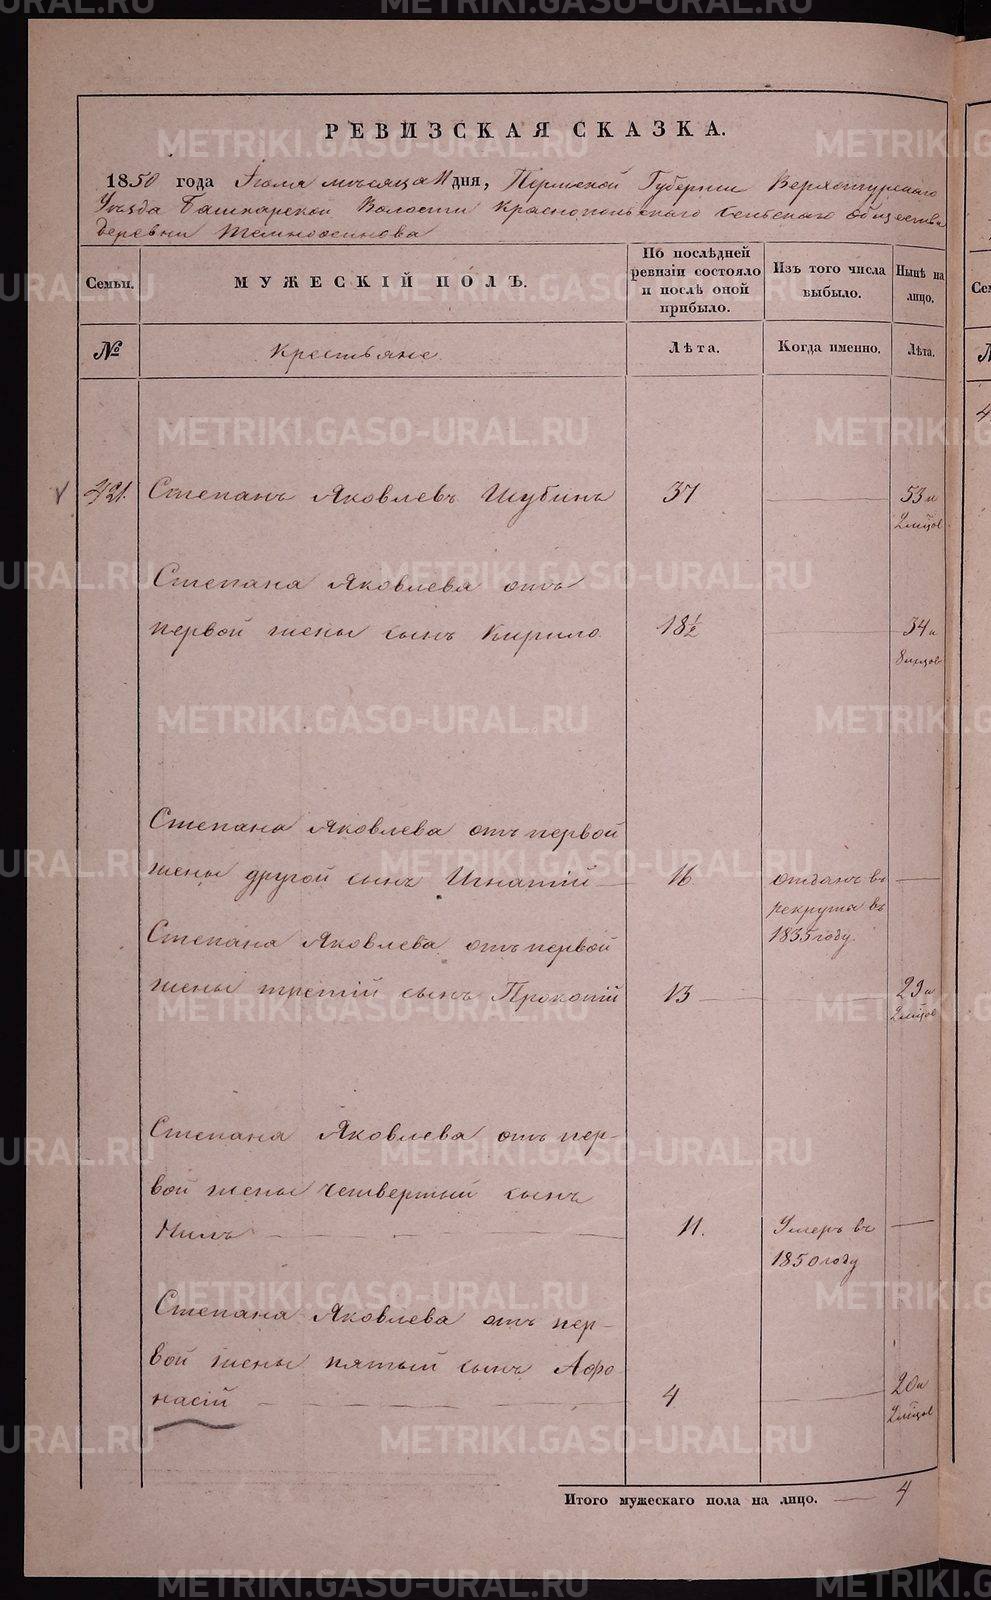 РЕВИЗСКАЯ СКАЗКА.
1850 года Іюля мѣсяца 11 дня, Пермской Губерніи Верхотурскаго
Уѣзда Башкарской Волости Краснопольскаго сельскаго общества
деревни Темноосинова
Семьи.
МУЖЕСКІЙ ПОЛЪ.
По послѣдней
ревизіи состояло
и послѣ оной
прибыло.
Изъ того числа
выбыло.
Нынѣ на
лицо.
№
Крестьяне.
Лѣта.
Когда именно.
Лѣта.
421. Степанъ Яковлевъ Шубинъ 37 53 и
2 мѣцов
Степана Яковлева отъ
первой жены сынъ Кирило 18½ 34 и
8 мѣцов
Степана Яковлева отъ первой
жены другой сынъ Игнатій 16 отданъ въ
рекруты въ
1835 году.
Степана Яковлева отъ первой
жены третій сынъ Прокопій 13 29 и
2 мѣцов
Степана Яковлева отъ пер-
вой жены четвертый сынъ
Нилъ 11. Умеръ въ
1850 году
Степана Яковлева отъ пер-
вой жены пятый сынъ Афо-
насій 4 20 и
2 мѣцов
Итого мужескаго пола на лицо. 4
METRIKI.GASO-URAL.RU